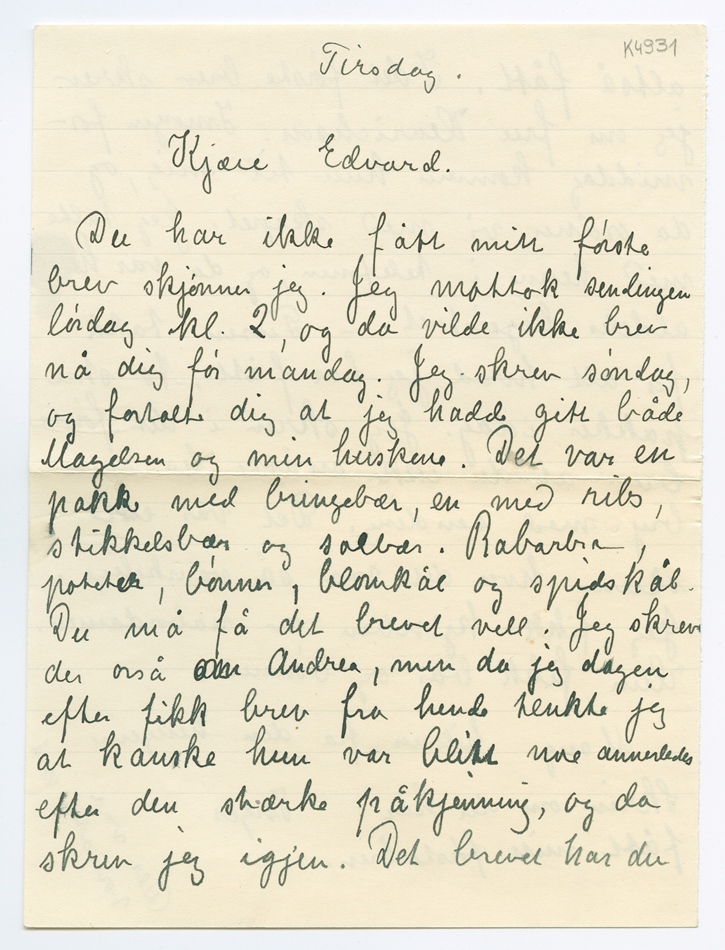 K4931
Tirsdag.
Kjære Edvard.
Du har ikke fått mitt første
brev skjønner jeg. Jeg mottok sendingen
lørdag kl. 2, og da vilde ikke brev
nå dig før mandag. Jeg skrev søndag,
og fortalte dig at jeg hadde gitt både
Magelsen og min huskene. Det var en
pakke med bringebær, en med ribs,
stikkelsbær og solbær. Rabarbra,
poteter, bønner, blomkål og spidskål.
Du må få det brevet vell. Jeg skrev
der også om Andrea, men da jeg dagen
efter fikk brev fra hende tenkte jeg
at kanske hun var blitt noe annerledes
efter den stærke påkjenning, og da
skrev jeg igjen. Det brevet har du